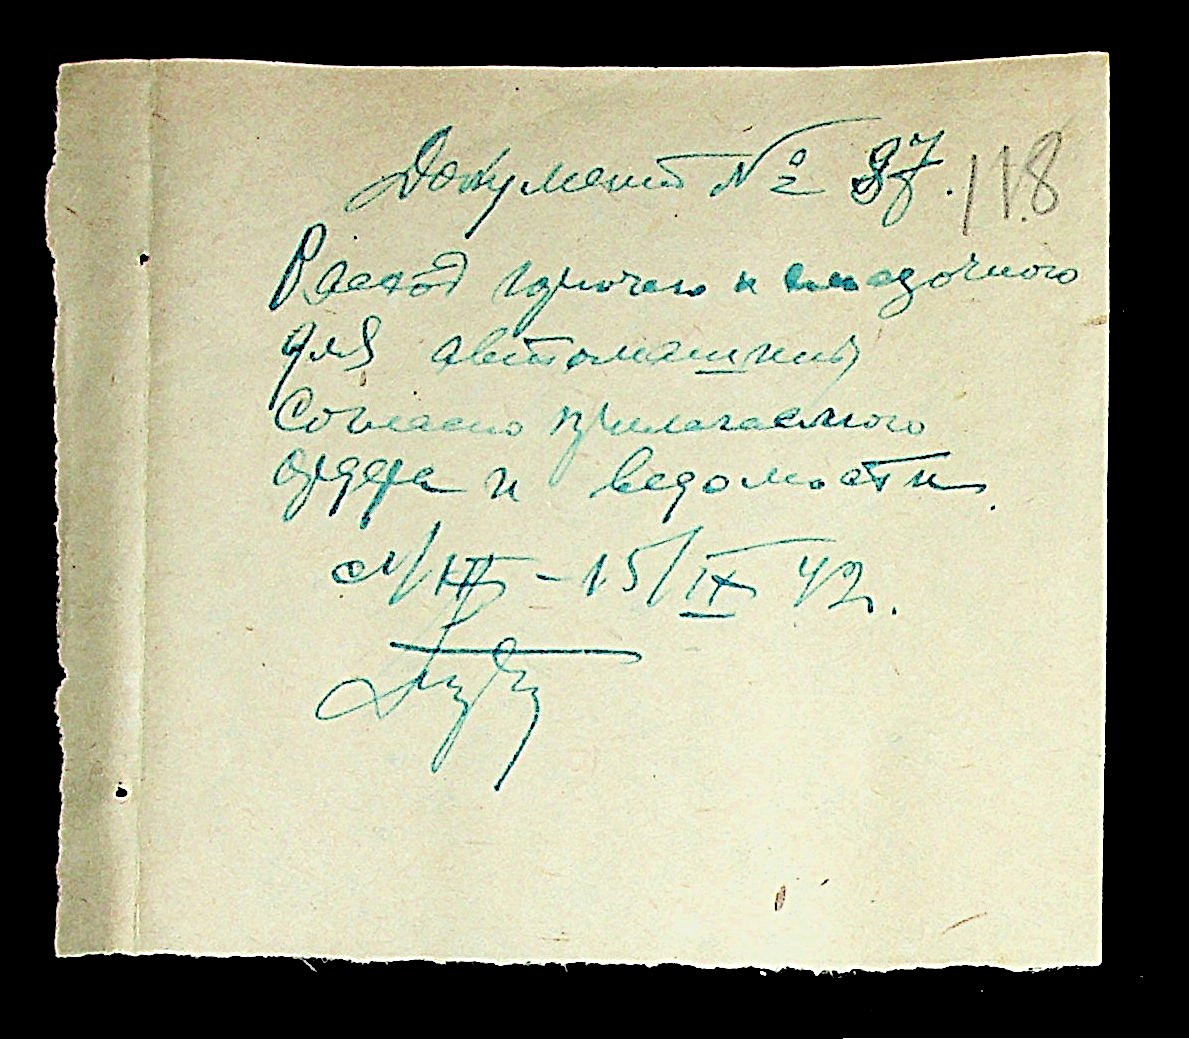 Документ № 87. 118
Расход горючего и смазочного
для автомашины
Согласно прилагаемого
ордера и ведомости.
с 1/IX – 15/IX 42.